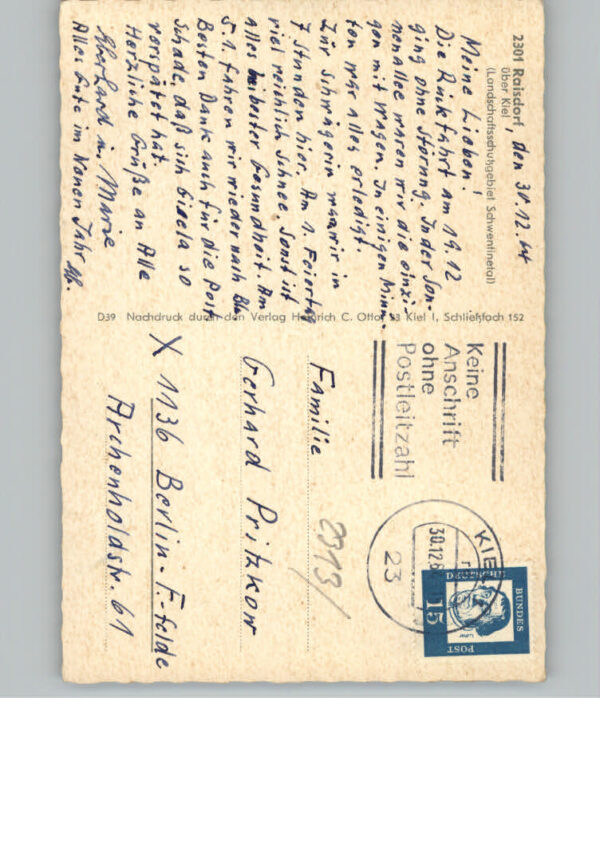 2301 Raisdorf, den 30.12.64
über Kiel
(Landschaftsschutzgebiet Schwentinetal)
Meine Lieben!
Die Rückfahrt am 19.12
ging ohne Störung. In der Son-
nenallee waren wir die einzi-
gen mit Wagen. In einigen Minu-
ten war alles erledigt.
Zur Schwägerin waren wir in
7 Stunden hier. Am 1. Feiertag
viel reichlich Schnee. Sonst ist
alles bei bester Gesundheit. Am
5.1. fahren wir wieder nach Bln
Besten Dank auch für die Post
Schade, daß sich Gisela so
verspätet hat.
Herzliche Grüße an Alle
Eberhard u. Marie
Alles Gute im Neuen Jahr
D39 Nachdruck durch den Verlag Heinrich C. Otto, 23 Kiel 1, Schließfach 152
Keine
Anschrift
ohne
Postleitzahl
KIEL
30.12.64
23
DEUTSCHE
BUNDES
POST
15
Luther
2313/
Familie
Gerhard Pritzkow
X 1136 Berlin-F.-felde
Archenholdstr. 61